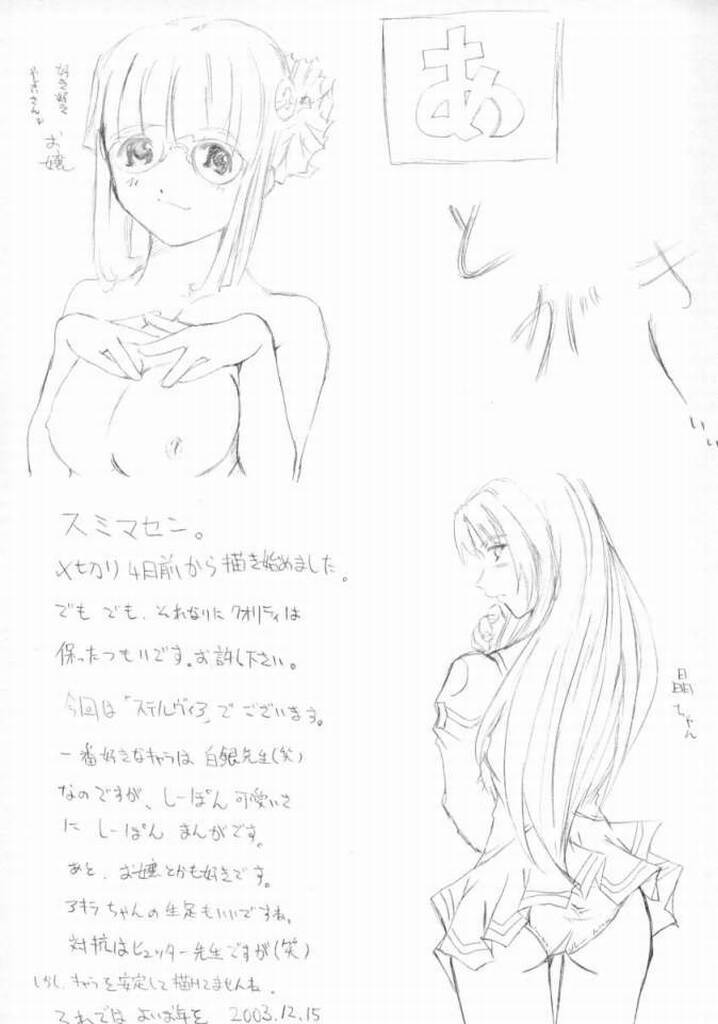 あ
とがき
お嬢
晶ちゃん
スミマセン。
〆切リ4日前から描き始めました。
でもでも、それなりにクオリティは
保ったつもりです。お許し下さい。
今回は「ステルヴィア」でございます。
一番好きなキャラは白銀先生(笑)
なのですが、しーぽん可愛いさ
にしーぽんまんがです。
あと、お嬢とかも好きです。
アキラちゃんの生足もいいですね。
対抗はヒュッター先生ですが(笑)
しかし、キャラを安定して描けてませんね。
それではよいお年を 2003.12.15